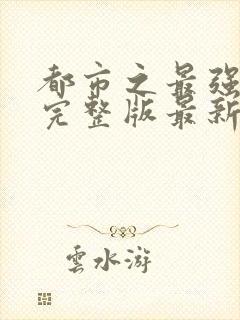 都市之最强
完整版最新
雲水游